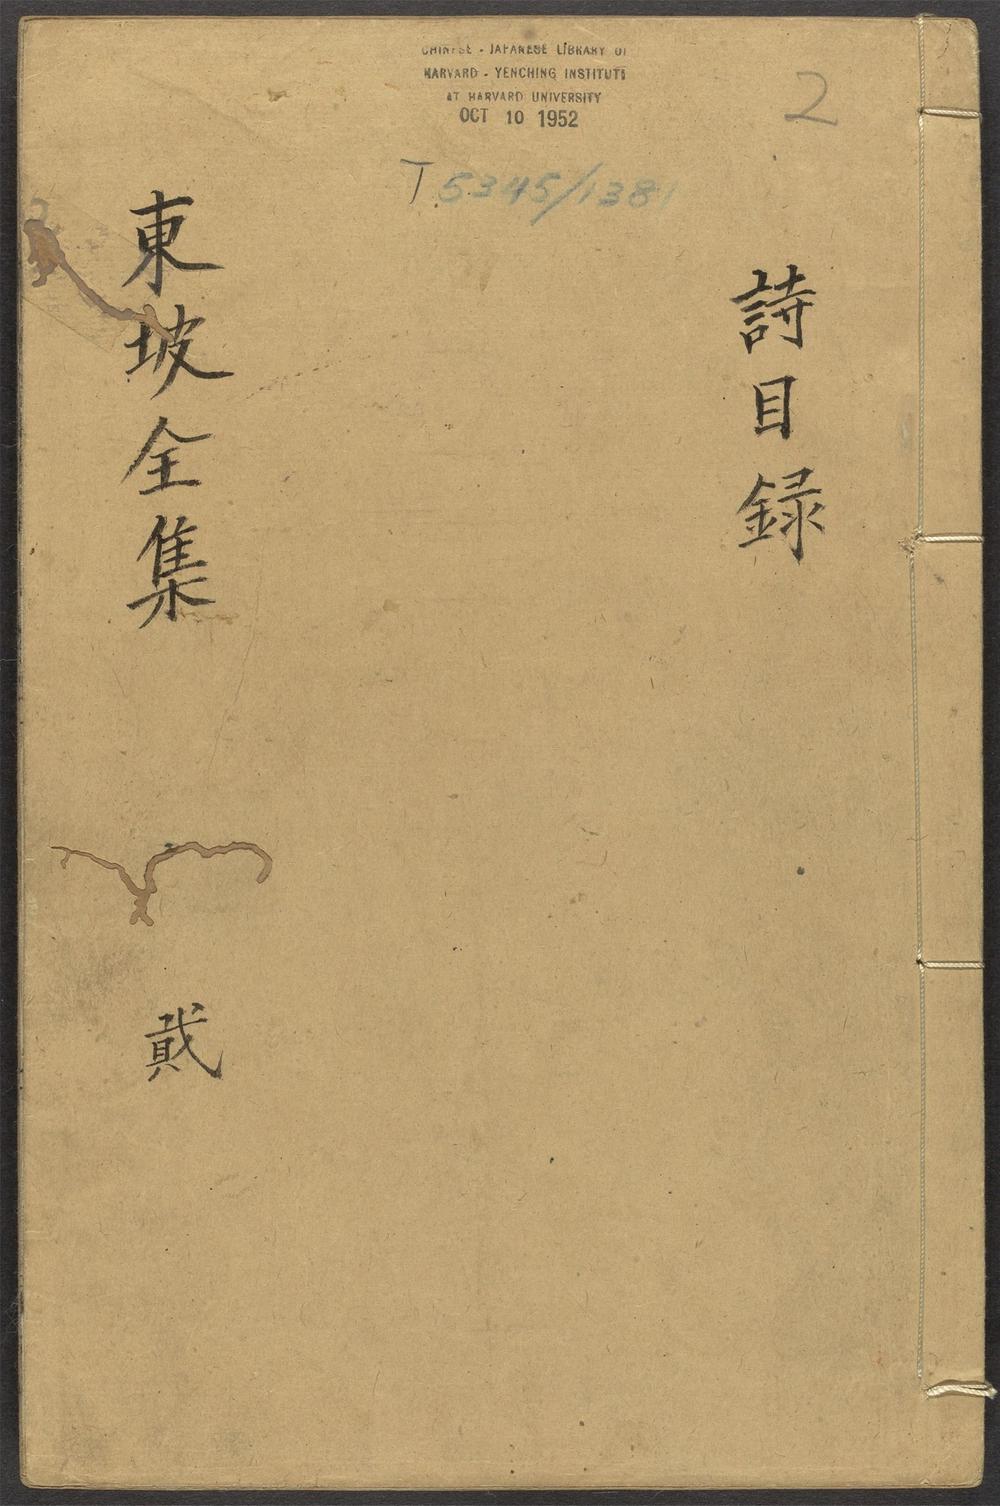 CHINESE - JAPANESE LIBRARY OF
HARVARD - YENCHING INSTITUTE
AT HARVARD UNIVERSITY
OCT 10 1952
2
T 5345/1381
詩目録
東坡全集
貳